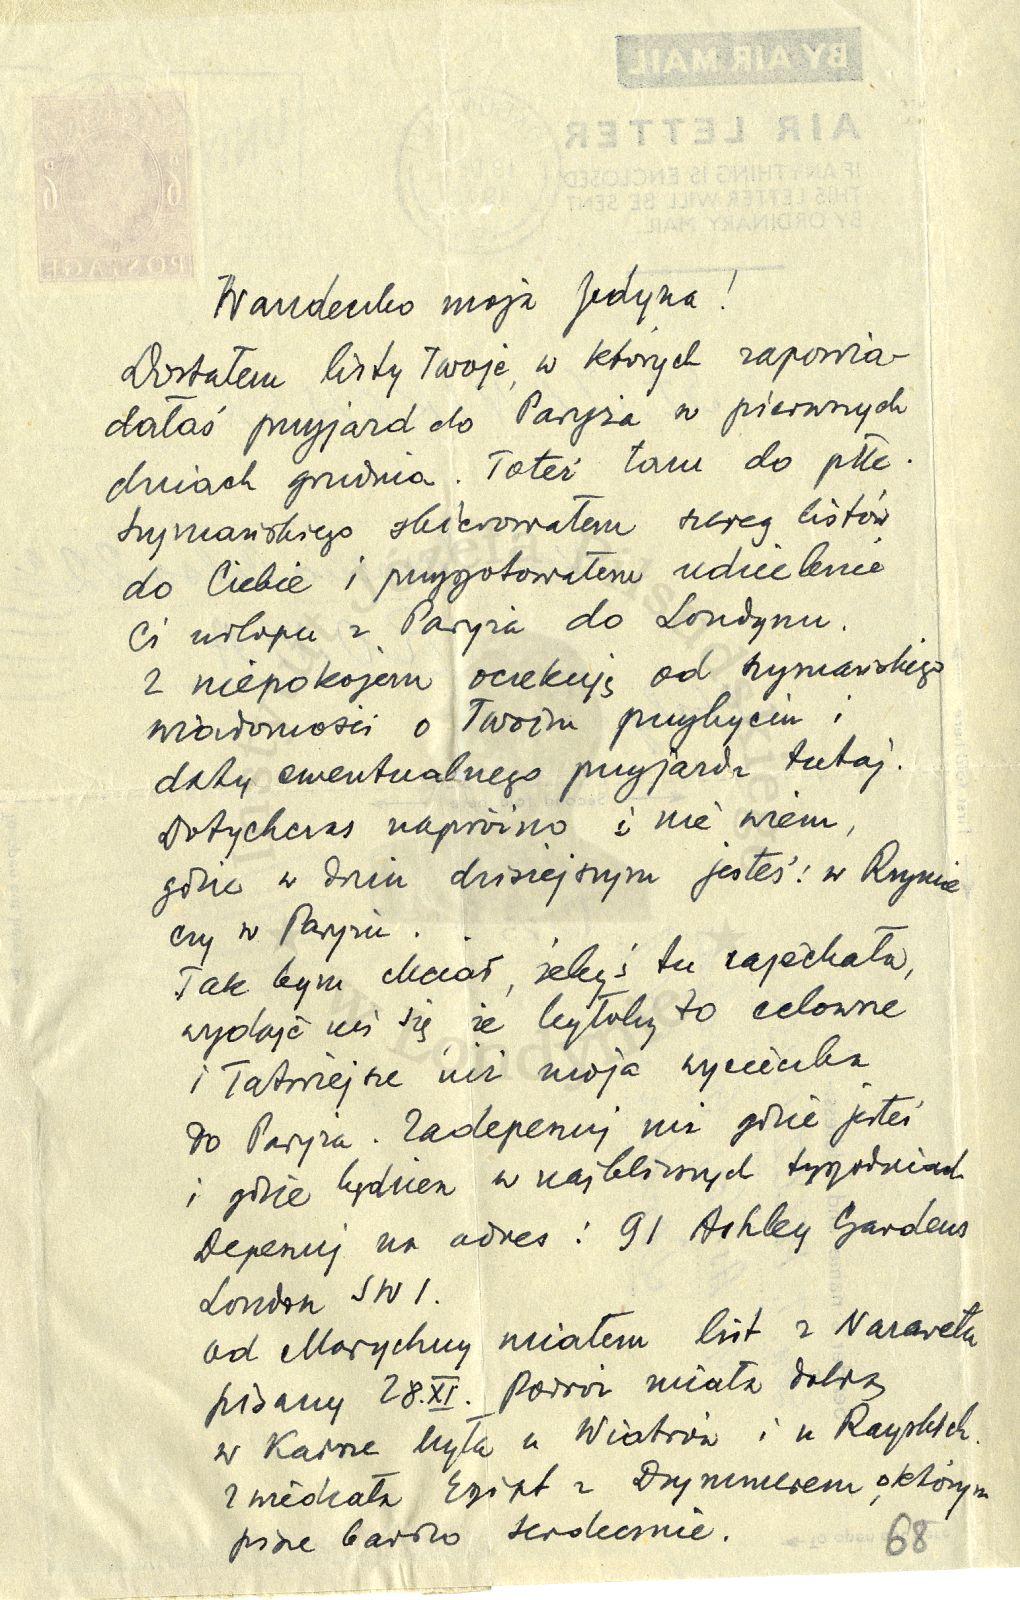 Wandeczko moja Jedyna!
Dostałem listy Twoje, w których zapowia-
dałaś przyjazd do Paryża w pierwszych
dniach grudnia. Toteż tam do płk.
Szymańskiego skierowałem szereg listów
do Ciebie i przygotowałem udzielenie
Ci urlopu z Paryża do Londynu.
Z niepokojem oczekuję od Szymańskiego
wiadomości o Twoim przybyciu i
daty ewentualnego przyjazdu tutaj.
Dotychczas napróżno i nie wiem,
gdzie w dniu dzisiejszym jesteś: w Rzymie
czy w Paryżu.
Tak bym chciał, żebyś tu zajechała,
wydaje mi się że byłoby to celowsze
i łatwiejsze niż moja wycieczka
do Paryża. Zadepeszuj mi gdzie jesteś
i gdzie będziesz w najbliższych tygodniach
Depeszuj na adres: 91 Ashley Gardens
London SW1.
Od Marychny miałem list z Nazaretu
pisany 28.XI. Podróż miała dobrą
w Kairze była u Wiatrów i u Rayskich.
Zwiedzała Egipt z Drymmerem, o którym
pisze bardzo serdecznie.
68
BY AIR MAIL
AIR LETTER
IF ANYTHING IS ENCLOSED
THIS LETTER WILL BE SENT
BY ORDINARY MAIL.
POSTAGE